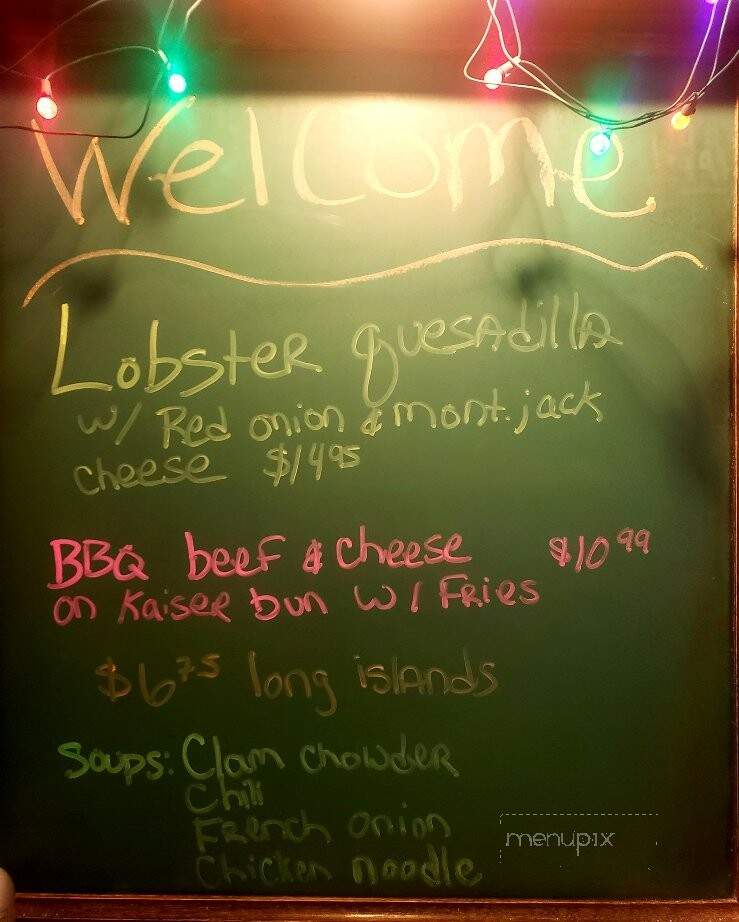 Welcome
Lobster quesadilla
w/ Red onion & mont. jack
cheese $14.95
BBQ beef & cheese $10.99
on Kaiser bun w/ Fries
$6.75 long islands
Soups: Clam chowder
Chili
French onion
Chicken noodle
menupix